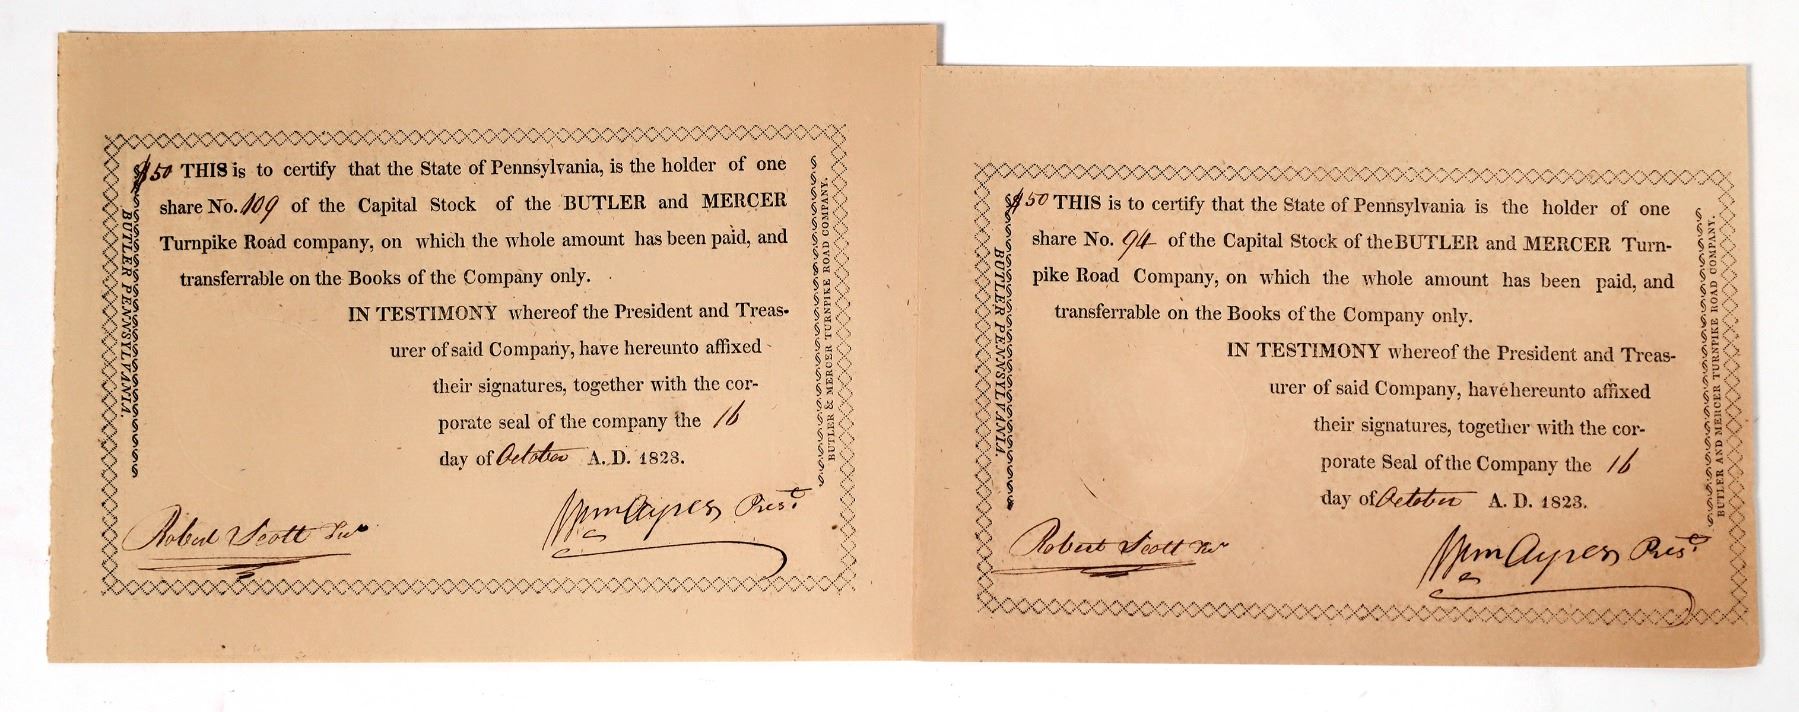 $50 THIS is to certify that the State of Pennsylvania, is the holder of one
share No. 109 of the Capital Stock of the BUTLER and MERCER
Turnpike Road company, on which the whole amount has been paid, and
transferrable on the Books of the Company only.
IN TESTIMONY whereof the President and Treas-
urer of said Company, have hereunto affixed
their signatures, together with the cor-
porate seal of the company the 16
day of October A. D. 1823.
Robert Scott Tre
Wm Ayres Prest.
BUTLER PENNSYLVANIA.
BUTLER & MERCER TURNPIKE ROAD COMPANY.
$50 THIS is to certify that the State of Pennsylvania is the holder of one
share No. 94 of the Capital Stock of the BUTLER and MERCER Turn-
pike Road Company, on which the whole amount has been paid, and
transferrable on the Books of the Company only.
IN TESTIMONY whereof the President and Treas-
urer of said Company, have hereunto affixed
their signatures, together with the cor-
porate Seal of the Company the 16
day of October A. D. 1823.
Robert Scott Tre
Wm Ayres Prest.
BUTLER PENNSYLVANIA
BUTLER AND MERCER TURNPIKE ROAD COMPANY.